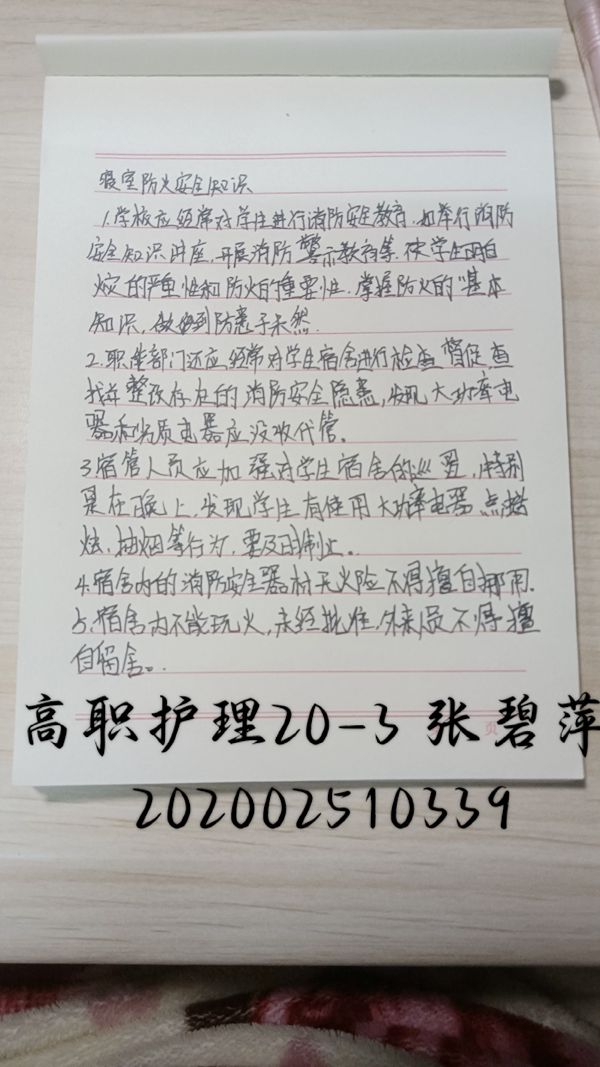 寝室防火安全知识
1.学校应经常对学生进行消防安全教育.如举行消防
安全知识讲座,开展消防警示教育等.使学生明白
火灾的严重性和防火的重要性.掌握防火的"基本
知识,做到防患于未然.
2.职能部门还应经常对学生宿舍进行检查督促查
找并整改存在的消防安全隐患,发现大功率电
器和劣质电器应没收代管。
3.宿管人员应加强对学生宿舍的巡逻,特别
是在晚上,发现学生有使用大功率电器.点蜡
烛,抽烟等行为,要及时制止。
4.宿舍内的消防安全器材无火险不得擅自挪用.
5.宿舍内不能玩火,未经批准,外来人员不得擅
自留舍。
页
高职护理20-3 张碧萍
202002510339